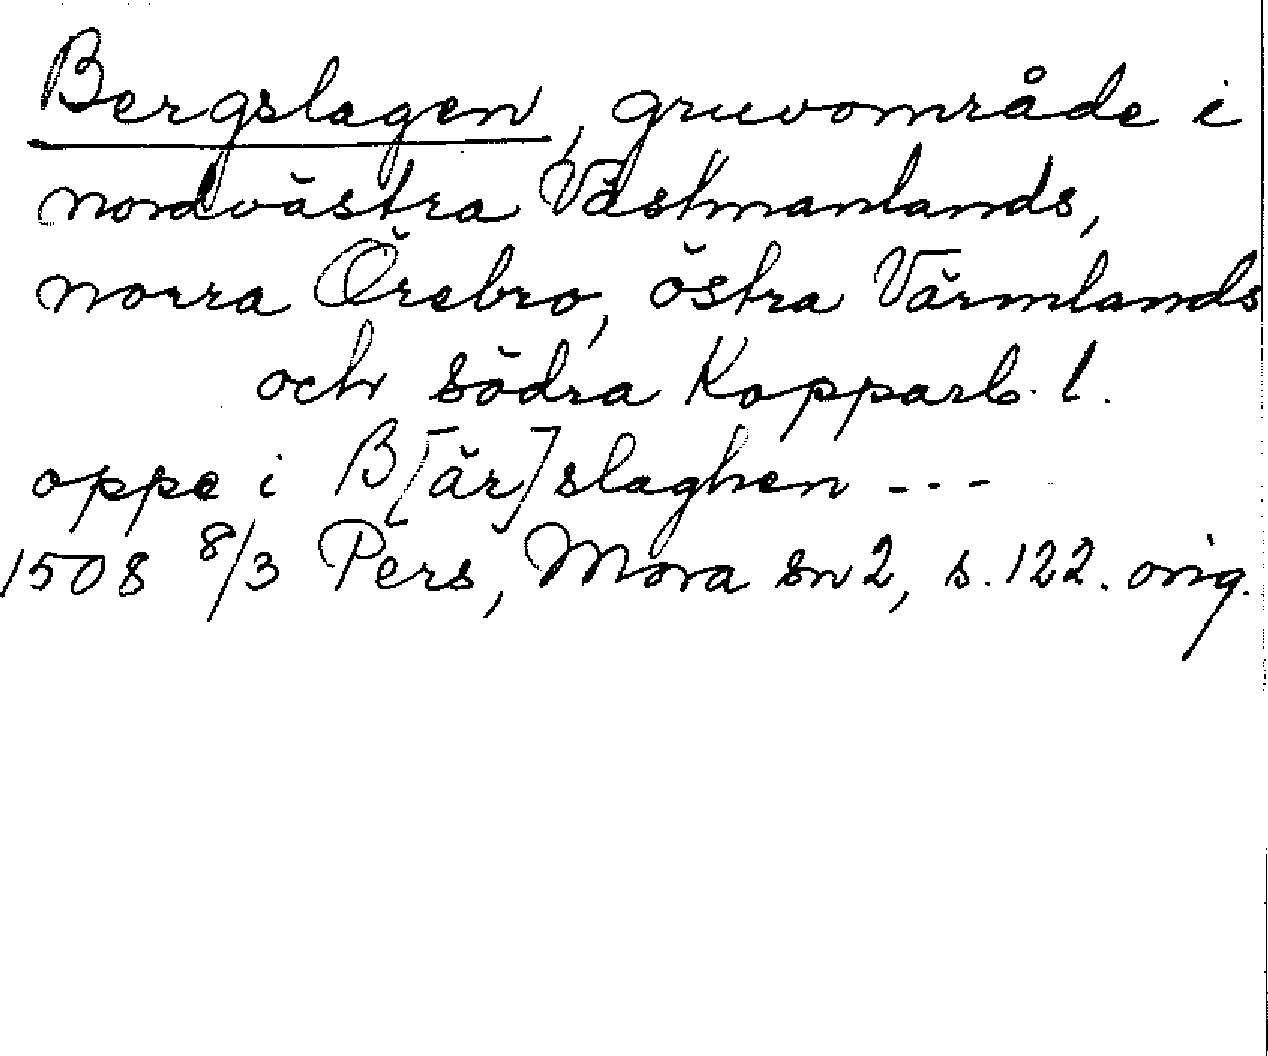 Bergslagen, gruvområde i
nordvästra Västmanlands,
norra Örebro, östra Värmlands
och södra Kopparb. l.
oppe i B[är]slaghen ---
1508 8/3 Pers, Mora sn 2, s. 122. orig.